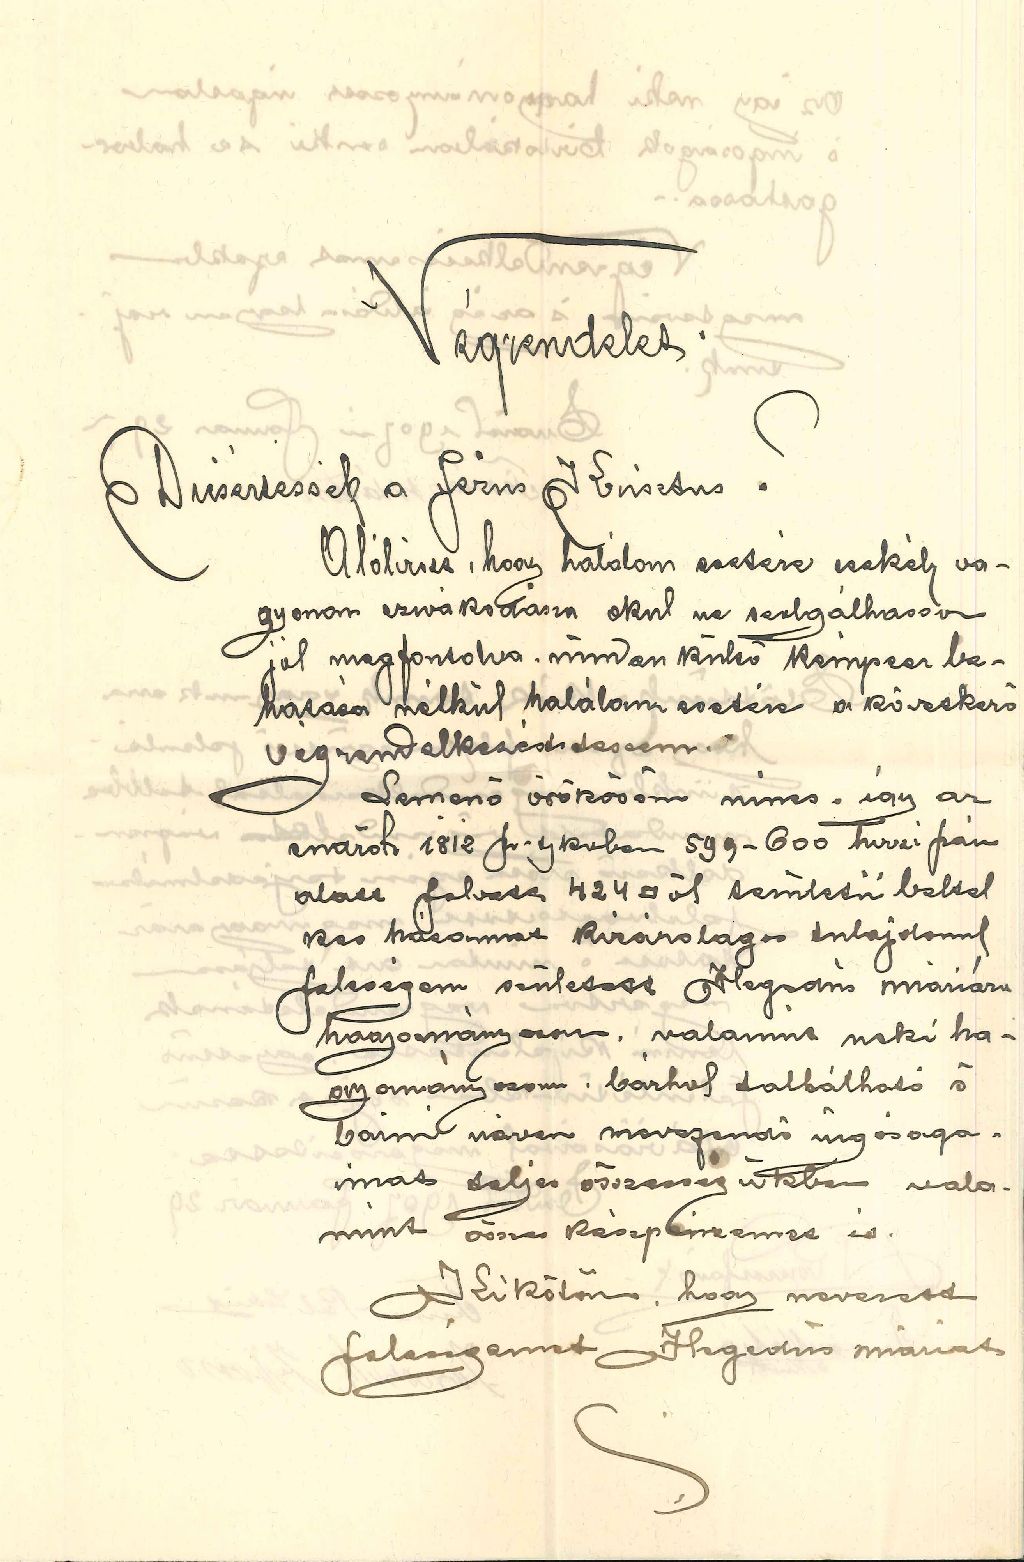 Végrendelet.
Dicsértessék a Jézus Krisztus.
Alólirot, hogy halálom esetére csekély va-
gyonom szivakodásra okul ne szolgálhasson
jól megfontolva. minden külső kémpszer be-
hatása nélkül halálom esetére a következő
végrendelkezést teszem.
Lemenő örökösöm nincs. így az
endrődi 1812 sz. tjkvben 599-600 hrszi szám
alatt felvett 424 □ öl területű beltel
kes házamat kizárolagos tulajdonul
feleségem született Hegedüs Máriára
hagyományozom, valamint neki ha-
gyományozom. bárhol található s
bármi néven nevezendő ingósága-
imat teljes összességükben vala-
mint összes készpénzemet is.
Kikötöm, hogy nevezett
feleségemet Hegedüs Máriát